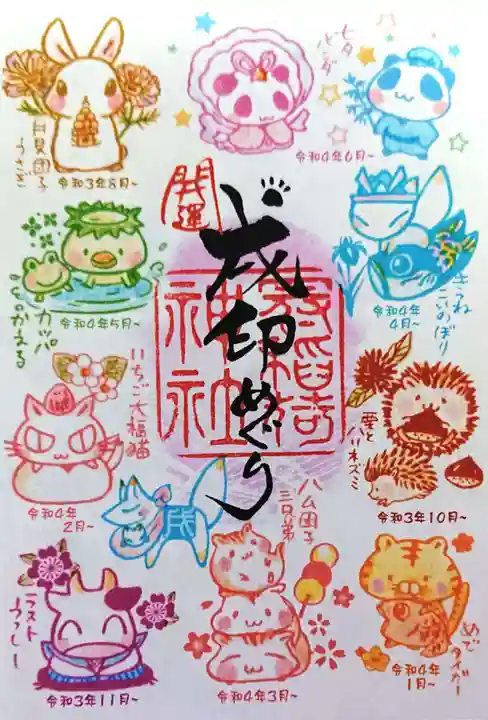 月見団子
うさぎ
令和3年8月~
七夕
パンダ
令和4年6月~
開運
戌印めぐり
神社
カッパ
令和4年5月~
きつね
こいのぼり
令和4年
4月~
いちご大福猫
令和4年
2月~
栗と
ハリネズミ
令和3年10月~
戌
ハム団子
三兄弟
令和4年3月~
めで
タイガー
令和4年
1月~
ラスト
うっしー
令和3年11月~